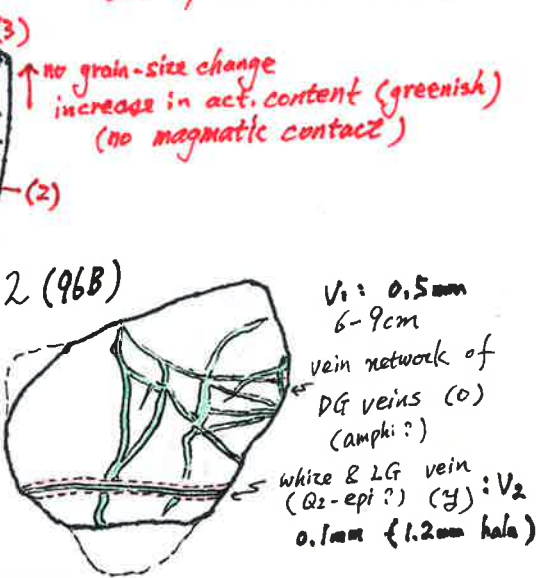 (3)
no grain-size change
increase in act. content (greenish)
(no magmatic contact)
(2)
2 (96B)
V1: 0.5mm
6-9cm
vein network of
DG veins (o)
(amphi?)
white & LG vein
(Qz-epi?) (y) : V2
0.1mm (1.2mm halo)